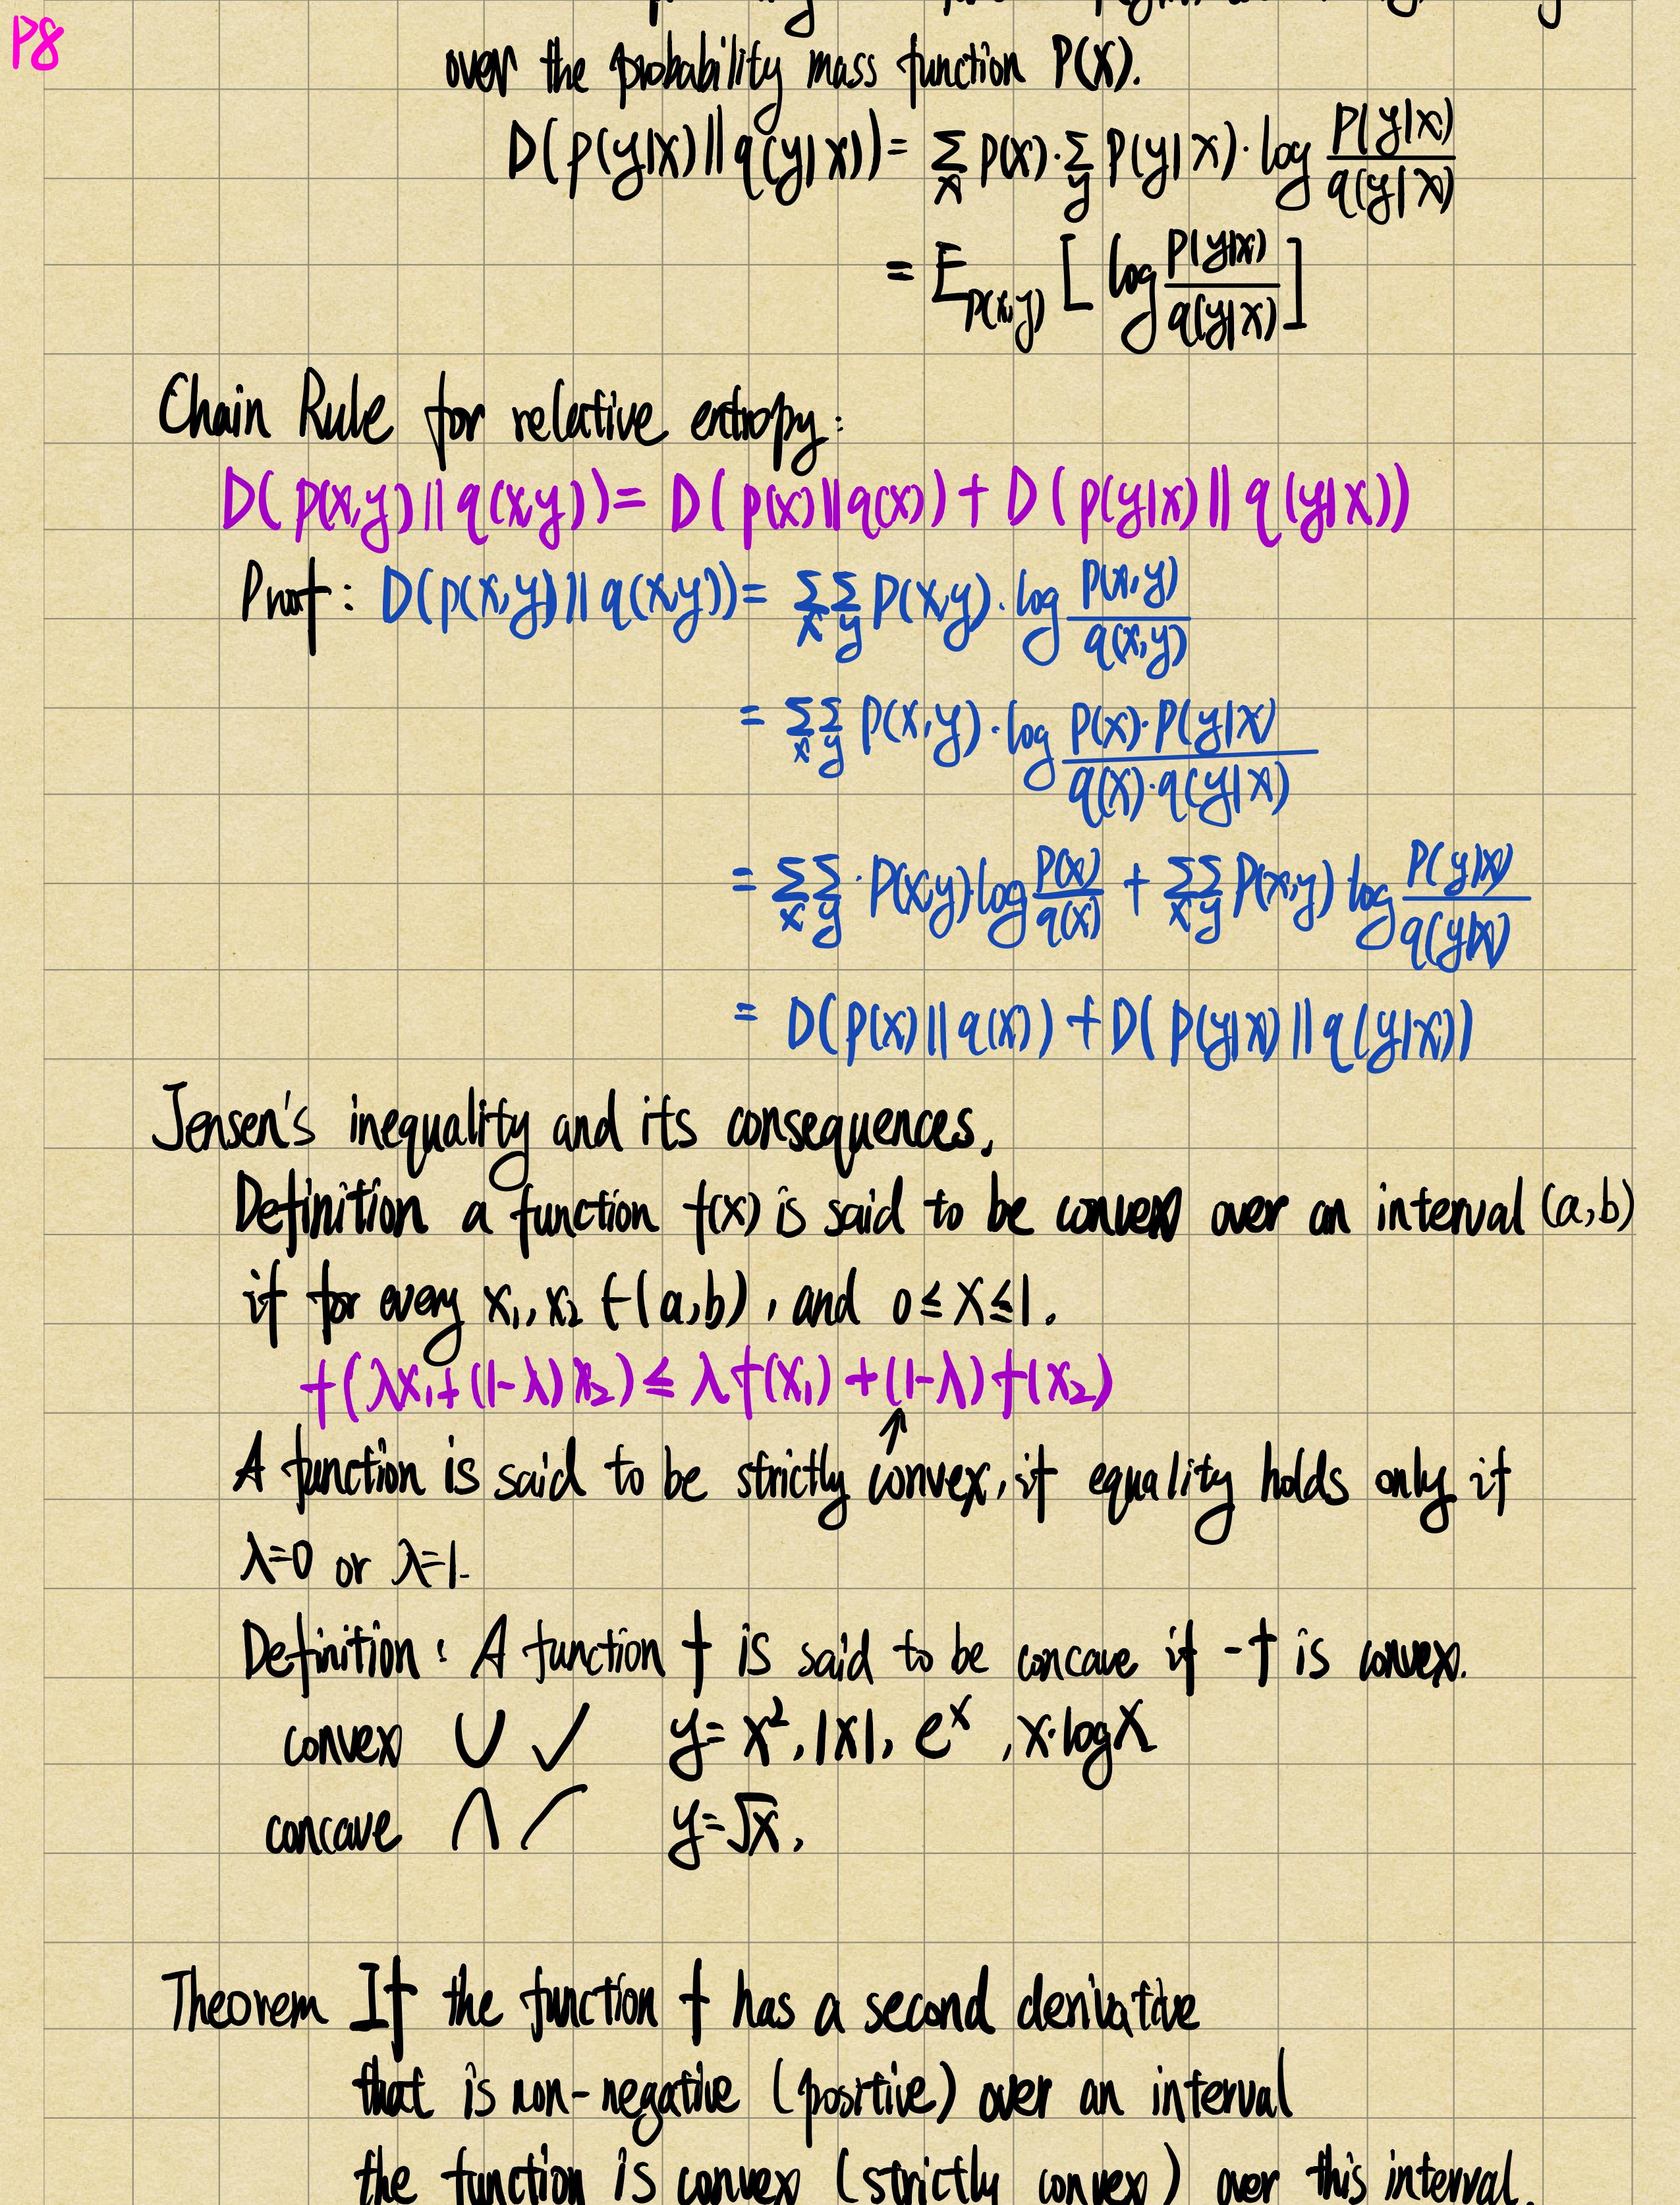 P8
over the probability mass function P(X).
D(p(y|x)||q(y|x)) = Σ_x p(x)·Σ_y P(y|x)·log P(y|x)/q(y|x)
= E_p(x,y) [log P(y|x)/q(y|x)]
Chain Rule for relative entropy:
D(p(x,y)||q(x,y)) = D(p(x)||q(x)) + D(p(y|x)||q(y|x))
Proof: D(p(x,y)||q(x,y)) = Σ_x Σ_y P(x,y)·log p(x,y)/q(x,y)
= Σ_x Σ_y p(x,y)·log P(x)·P(y|x)/q(x)·q(y|x)
= Σ_x Σ_y ·P(x,y)·log p(x)/q(x) + Σ_x Σ_y P(x,y) log P(y|x)/q(y|x)
= D(p(x)||q(x)) + D(p(y|x)||q(y|x))
Jensen's inequality and its consequences,
Definition a function f(x) is said to be convex over an interval (a,b)
if for every x₁, x₂ ∈ (a,b), and 0 ≤ X ≤ 1.
f(λx₁+(1-λ)x₂) ≤ λf(x₁)+(1-λ)f(x₂)
↑
A function is said to be strictly convex, if equality holds only if
λ=0 or λ=1.
Definition: A function f is said to be concave if -f is convex.
convex ∪ ✓ y= x², |x|, eˣ, x·logx
concave ∩ y=√x,
Theorem If the function f has a second derivative
that is non-negative (positive) over an interval
the function is convex (strictly convex) over this interval.